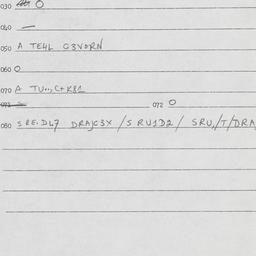 030 O
040 —
050 A TE4L C3VORN
060 O
070 A TU.., C+K81
072 O
080 SRE.D47 DRAJC3X / SRU1D2 / SRU,/T/DRA